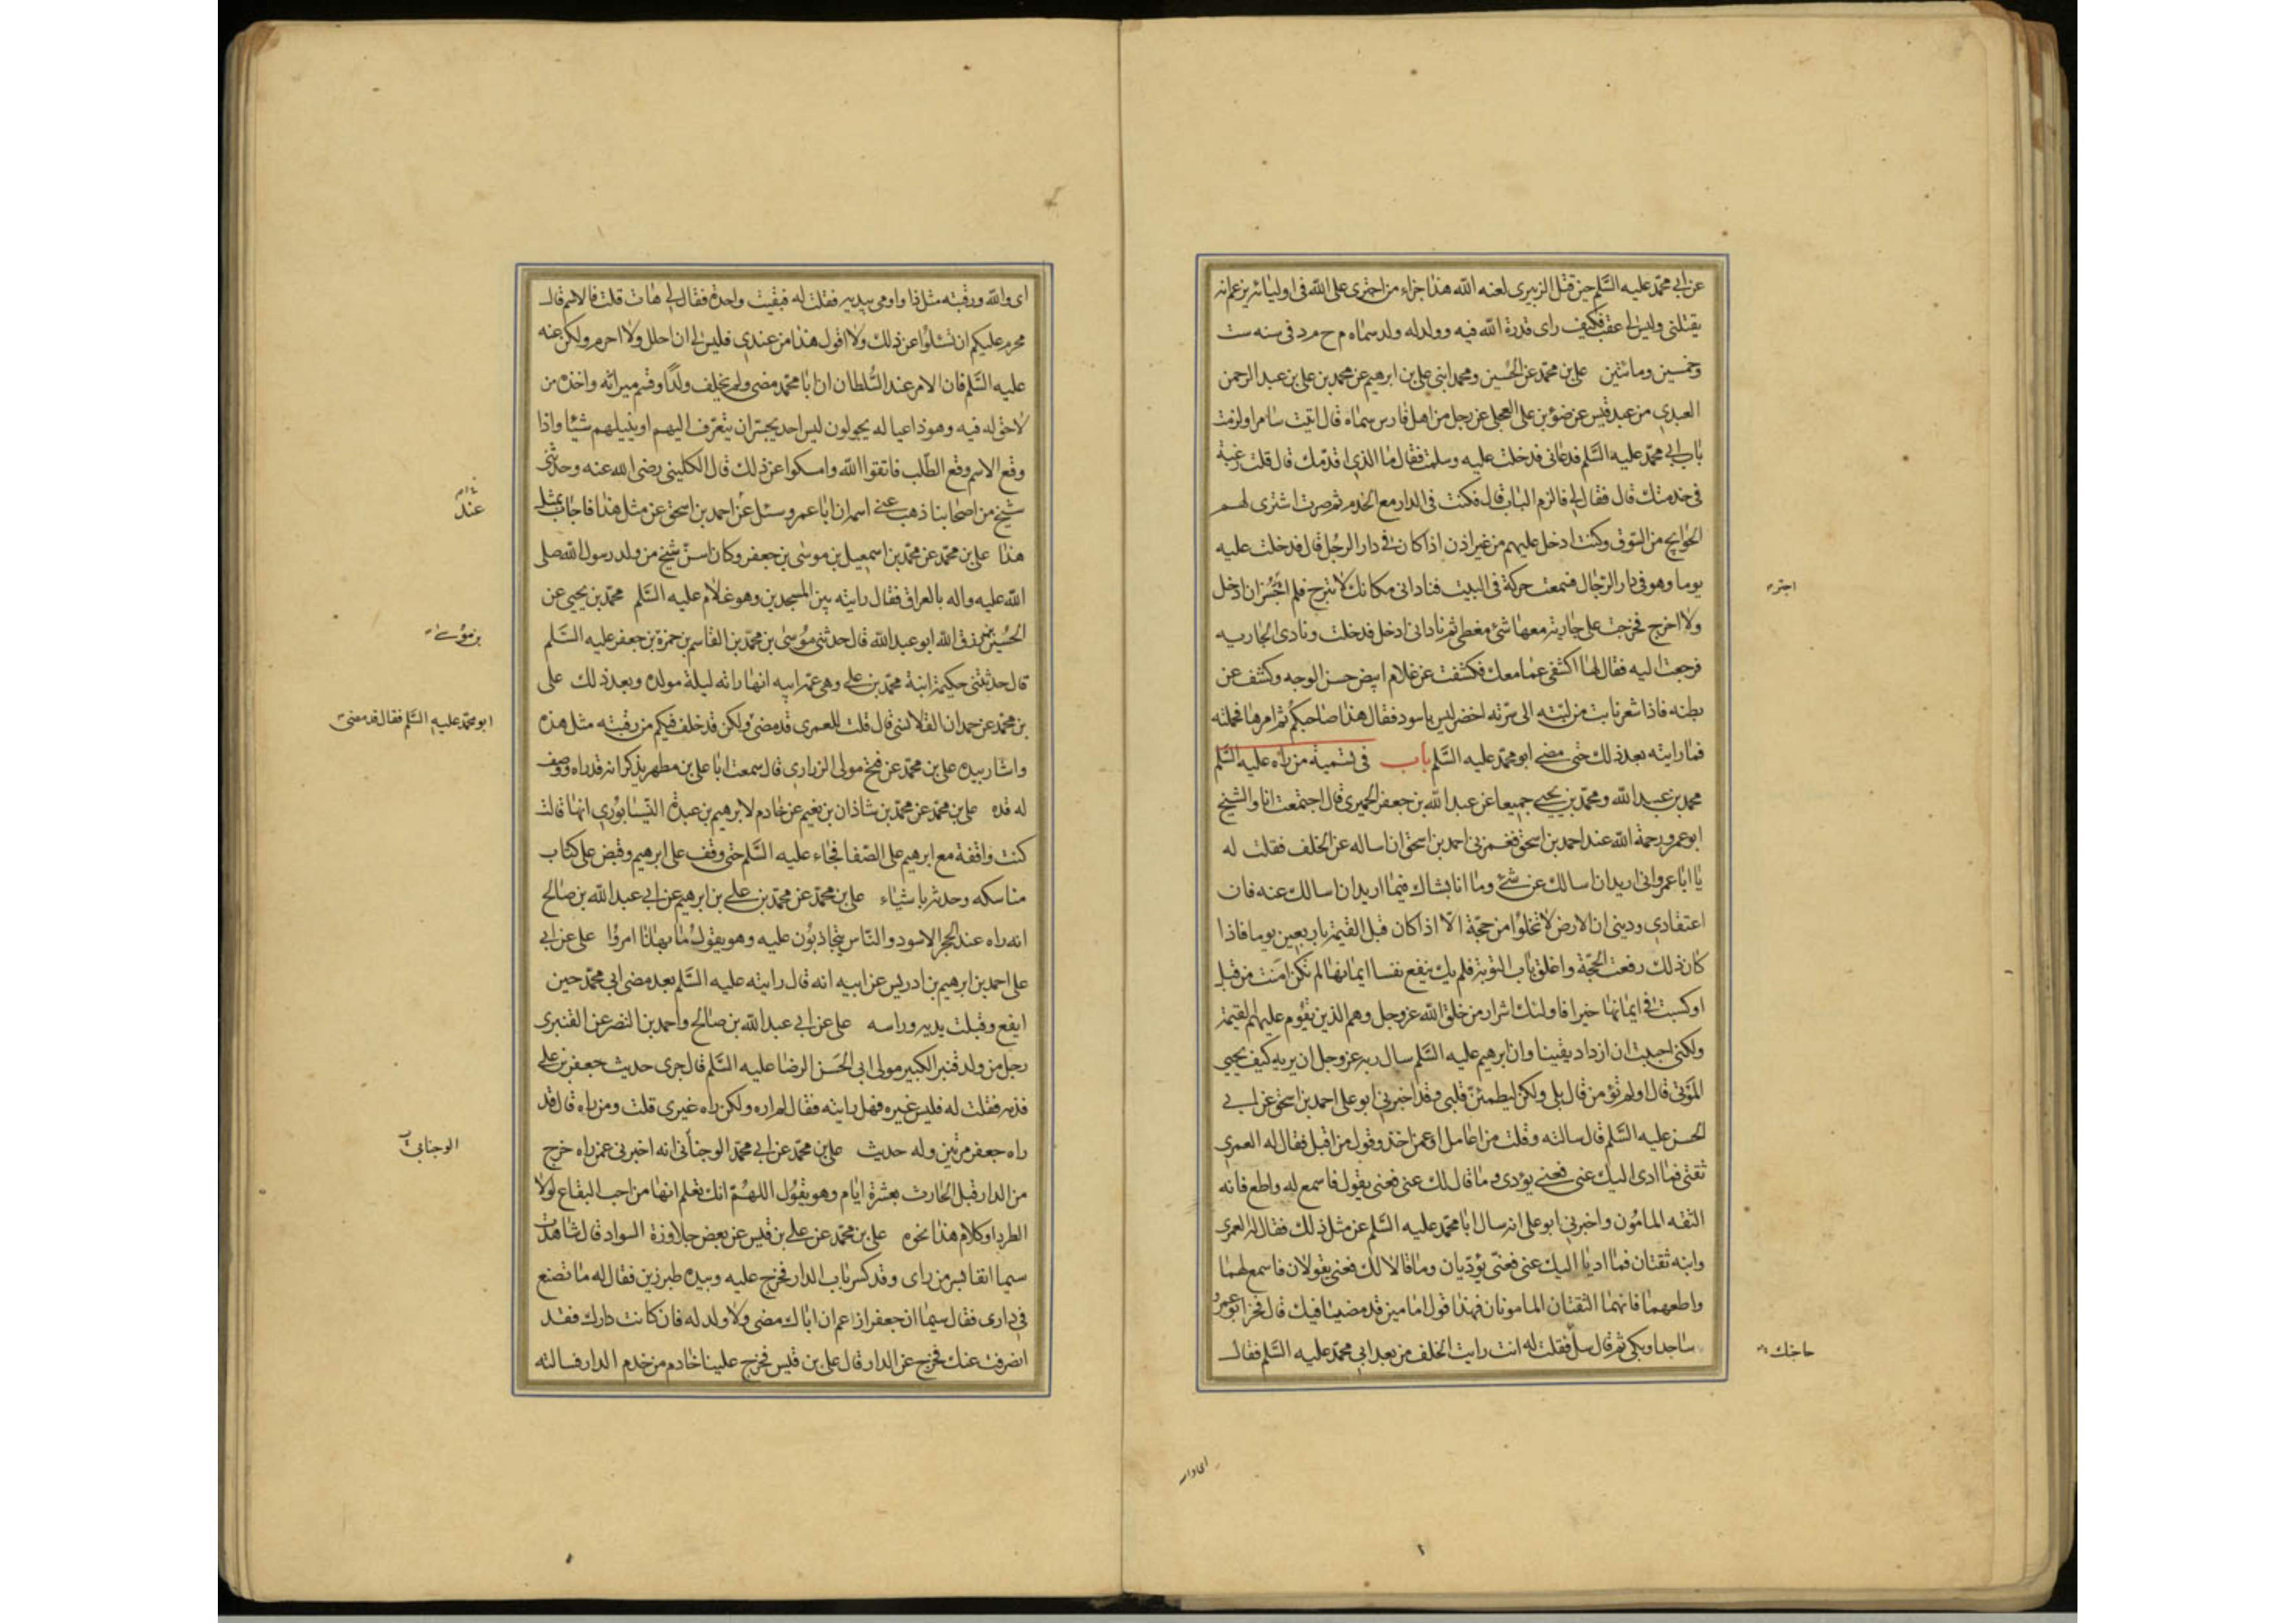 عن ابي محمد عليه السلم حين قتل الزبيرى لعنه الله هذا جزاء من اجترى على الله فى اوليائه يزعم انه
يقتلنى وليس لى عقب فكيف راى قدرة الله فيه وولد له ولد سماه م ح م د فى سنه ست
وخمسين ومائتين على بن محمد عن الحسين ومحمد ابنى على بن ابرهيم عن محمد بن على بن عبد الرحمن
العبدي من عبد قيس عن ضوء بن على العجلى عن رجل من اهل فارس سماه قال اتيت سامرا ولزمت
باب ابي محمد عليه السلم فدعانى فدخلت عليه وسلمت فقال ما الذي اقدمك قال قلت رغبة
فى خدمتك قال فقال لى فالزم الباب قال فكنت فى الدار مع الخدم ثم صرت اشترى لهم
الحوايج من السوق وكنت ادخل عليهم من غير اذن اذا كان فى دار الرجل قال فدخلت عليه
يوما وهو فى دار الرجال فسمعت حركة فى البيت فنادانى مكانك لا تبرح فلم اجسر ان ادخل
ولا اخرج فخرجت على جارية معها شئ مغطى ثم نادانى ادخل فدخلت ونادى الجاريه
فرجعت اليه فقال لها اكشفى عما معك فكشفت عن غلام ابيض حسن الوجه وكشف عن
بطنه فاذا شعر نابت من لبته الى سرته اخضر ليس باسود فقال هذا صاحبكم ثم امرها فحملته
فما رايته بعد ذلك حتى مضى ابو محمد عليه السلم باب فى تسمية من راه عليه السلم
محمد بن عبد الله ومحمد بن يحيى جميعا عن عبد الله بن جعفر الحميرى قال اجتمعت انا والشيخ
ابو عمرو رحمة الله عند احمد بن اسحق فغمزنى احمد بن اسحق ان اساله عن الخلف فقلت له
يا ابا عمرو انى اريد ان اسالك عن شئ وما انا بشاك فيما اريد ان اسالك عنه فان
اعتقادي ودينى ان الارض لا تخلوا من حجة الا اذا كان قبل القيمة باربعين يوما فاذا
كان ذلك رفعت الحجة واغلق باب التوبة فلم يك ينفع نفسا ايمانها لم تكن امنت من قبل
او كسبت فى ايمانها خيرا فاولئك اشرار من خلق الله عز وجل وهم الذين تقوم عليهم القيمة
ولكنى احببت ان ازداد يقينا وان ابرهيم عليه السلم سال ربه عز وجل ان يريه كيف يحيي
الموتى قال اولم تؤمن قال بلى ولكن ليطمئن قلبى وقد اخبرنى ابو على احمد بن اسحق عن ابى
الحسن عليه السلم قال سالته وقلت من اعامل او عمن اخذ وقول من اقبل فقال له العمرى
ثقتى فما ادى اليك عنى فعنى يؤدى وما قال لك عنى فعنى يقول فاسمع له واطع فانه
الثقه المامون واخبرنى ابو على انه سال ابا محمد عليه السلم عن مثل ذلك فقال له العمرى
وابنه ثقتان فما اديا اليك عنى فعنى يؤديان وما قالا لك فعنى يقولان فاسمع لهما
واطعهما فانهما الثقتان المامونان فهذا قول امامين قد مضيا فيك قال فخر ابو عمرو
ساجدا وبكى ثم قال سل فقلت له انت رايت الخلف من بعد ابى محمد عليه السلم فقال
اجتر
حاجتك
اى والله ورقبته مثل ذا واومى بيديه فقلت له فبقيت واحدة فقال لى هات قلت فالاسم قال
محرم عليكم ان تسئلوا عن ذلك ولا اقول هذا من عندي فليس لى ان احلل ولا احرم ولكن عنه
عليه السلم فان الامر عند السلطان ان ابا محمد مضى ولم يخلف ولدا وقسم ميراثه واخذه من
لا حق له فيه وهو ذا عياله يجولون ليس احد يجسر ان يتعرف اليهم او ينيلهم شيئا واذا
وقع الاسم وقع الطلب فاتقوا الله وامسكوا عن ذلك قال الكلينى رضى الله عنه وحدثنى
شيخ من اصحابنا ذهب عنى اسمه ان ابا عمرو سئل عن احمد بن اسحق عن مثل هذا فاجاب بمثل
هذا على بن محمد عن محمد بن اسمعيل بن موسى بن جعفر وكان اسن شيخ من ولد رسول الله صلى
الله عليه واله بالعراق فقال رايته بين المسجدين وهو غلام عليه السلم محمد بن يحيى عن
الحسين بن رزق الله ابو عبد الله قال حدثنى موسى بن محمد بن القاسم بن حمزة بن جعفر عليه السلم
قال حدثتنى حكيمة ابنة محمد بن على وهى عمة ابيه انها راته ليلة مولده وبعد ذلك على
بن محمد عن حمدان القلانسى قال قلت للعمرى قد مضى ولكن قد خلف فيكم من رقبته مثل هذه
واشار بيده على بن محمد عن فتح مولى الزرارى قال سمعت ابا على بن مطهر يذكر انه قد راه ووصف
له قده على بن محمد عن محمد بن شاذان بن نعيم عن خادم لابرهيم بن عبدة النيسابوري انها قالت
كنت واقفة مع ابرهيم على الصفا فجاء عليه السلم حتى وقف على ابرهيم وقبض على كتاب
مناسكه وحدثه باشياء على بن محمد عن محمد بن على بن ابرهيم عن ابى عبد الله بن صالح
انه راه عند الحجر الاسود والناس يتجاذبون عليه وهو يقول ما بهذا امروا على عن ابى
على احمد بن ابرهيم بن ادريس عن ابيه انه قال رايته عليه السلم بعد مضى ابى محمد حين
ايفع وقبلت يديه وراسه على عن ابى عبد الله بن صالح واحمد بن النضر عن القنبرى
رجل من ولد قنبر الكبير مولى ابى الحسن الرضا عليه السلم قال جرى حديث جعفر بن على
فذمه فقلت له فليس غيره فهل رايته فقال لم اره ولكن راه غيرى قلت ومن راه قال قد
راه جعفر مرتين وله حديث على بن محمد عن ابى محمد الوجنانى انه اخبرنى عمن راه خرج
من الدار قبل الحارث بعشرة ايام وهو يقول اللهم انك تعلم انها من احب البقاع لولا
الطرد او كلام هذا نحوه على بن محمد عن على بن قيس عن بعض جلاوزة السواد قال شاهدت
سيما انفا بسر من راى وقد كسر باب الدار فخرج عليه وبيده طبرزين فقال له ما تصنع
فى دارى فقال سيما ان جعفرا زعم ان اباك مضى ولا ولد له فان كانت دارك فقد
انصرفت عنك فخرج عن الدار قال على بن قيس فخرج علينا خادم من خدم الدار فسالته
عند
بن موسى
ابو محمد عليه السلم فقال قد مضى
الوجنايى